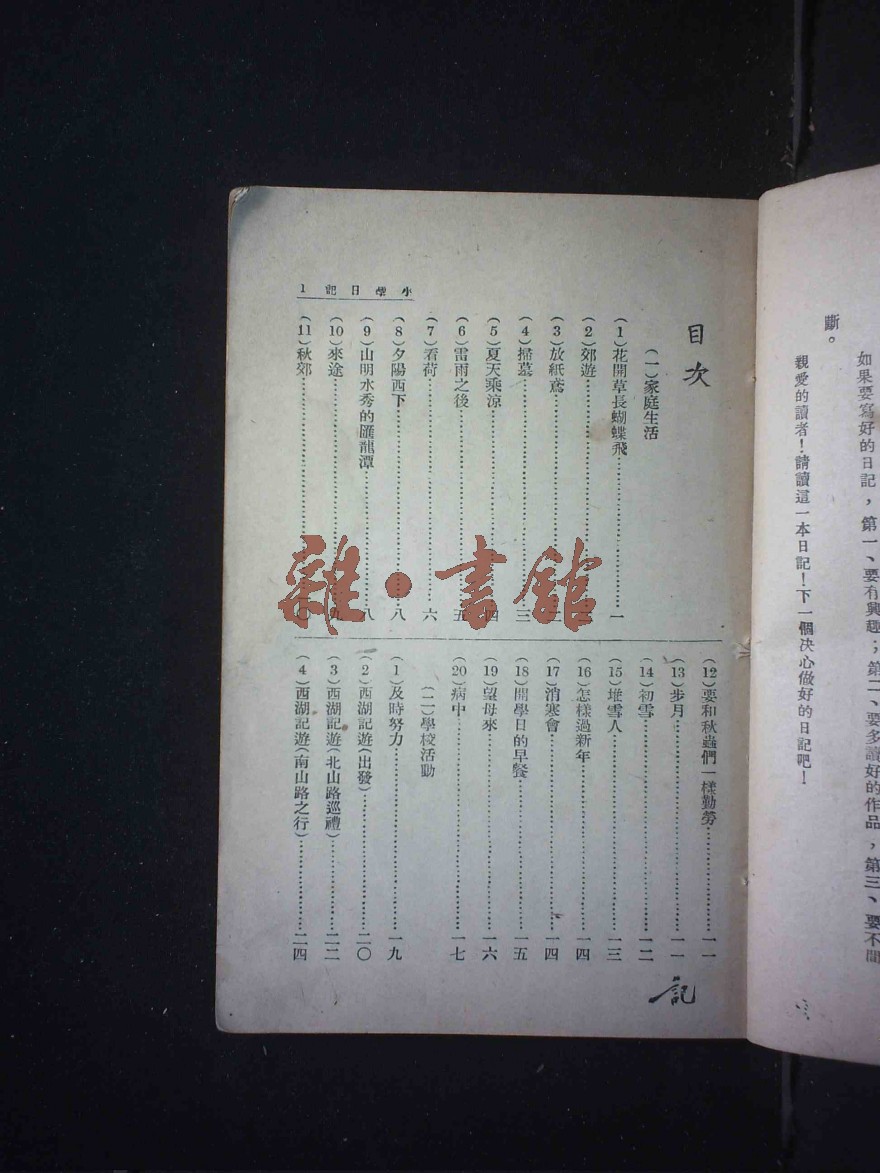 如果要寫好的日記，第一、要有興趣；第二、要多讀好的作品，第三、要不間
斷。
親愛的讀者！請讀這一本日記！下一個決心做好的日記吧！
小學日記 1
目次
（一）家庭生活
（1）花開草長蝴蝶飛……一
（2）郊遊……
（3）放紙鳶……二
（4）掃墓……三
（5）夏天乘涼……四
（6）雷雨之後……五
（7）看荷……六
（8）夕陽西下……八
（9）山明水秀的匯龍潭……八
（10）來途……九
（11）秋郊……一〇
（12）要和秋蟲們一樣勤勞……一一
（13）步月……一一
（14）初雪……一二
（15）堆雪人……一三
（16）怎樣過新年……一四
（17）消寒會……一四
（18）開學日的早餐……一五
（19）望母來……一六
（20）病中……一七
（二）學校活動
（1）及時努力……一九
（2）西湖記遊（出發）……二〇
（3）西湖記遊（北山路巡禮）……二二
（4）西湖記遊（南山路之行）……二四
記
雜·書館